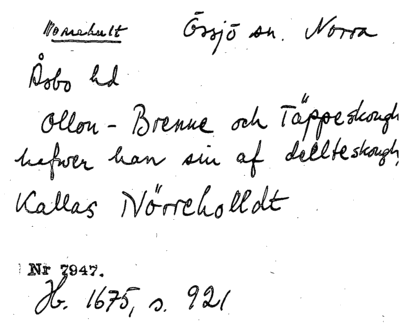 Norrehult Össjö sn. Norra
Åsbo hd
Ollon- Brenne och Täppeskough
hafwer han sin af dellteskough,
Kallas Nörreholldt
Nr 7947.
Hb. 1675, s. 921